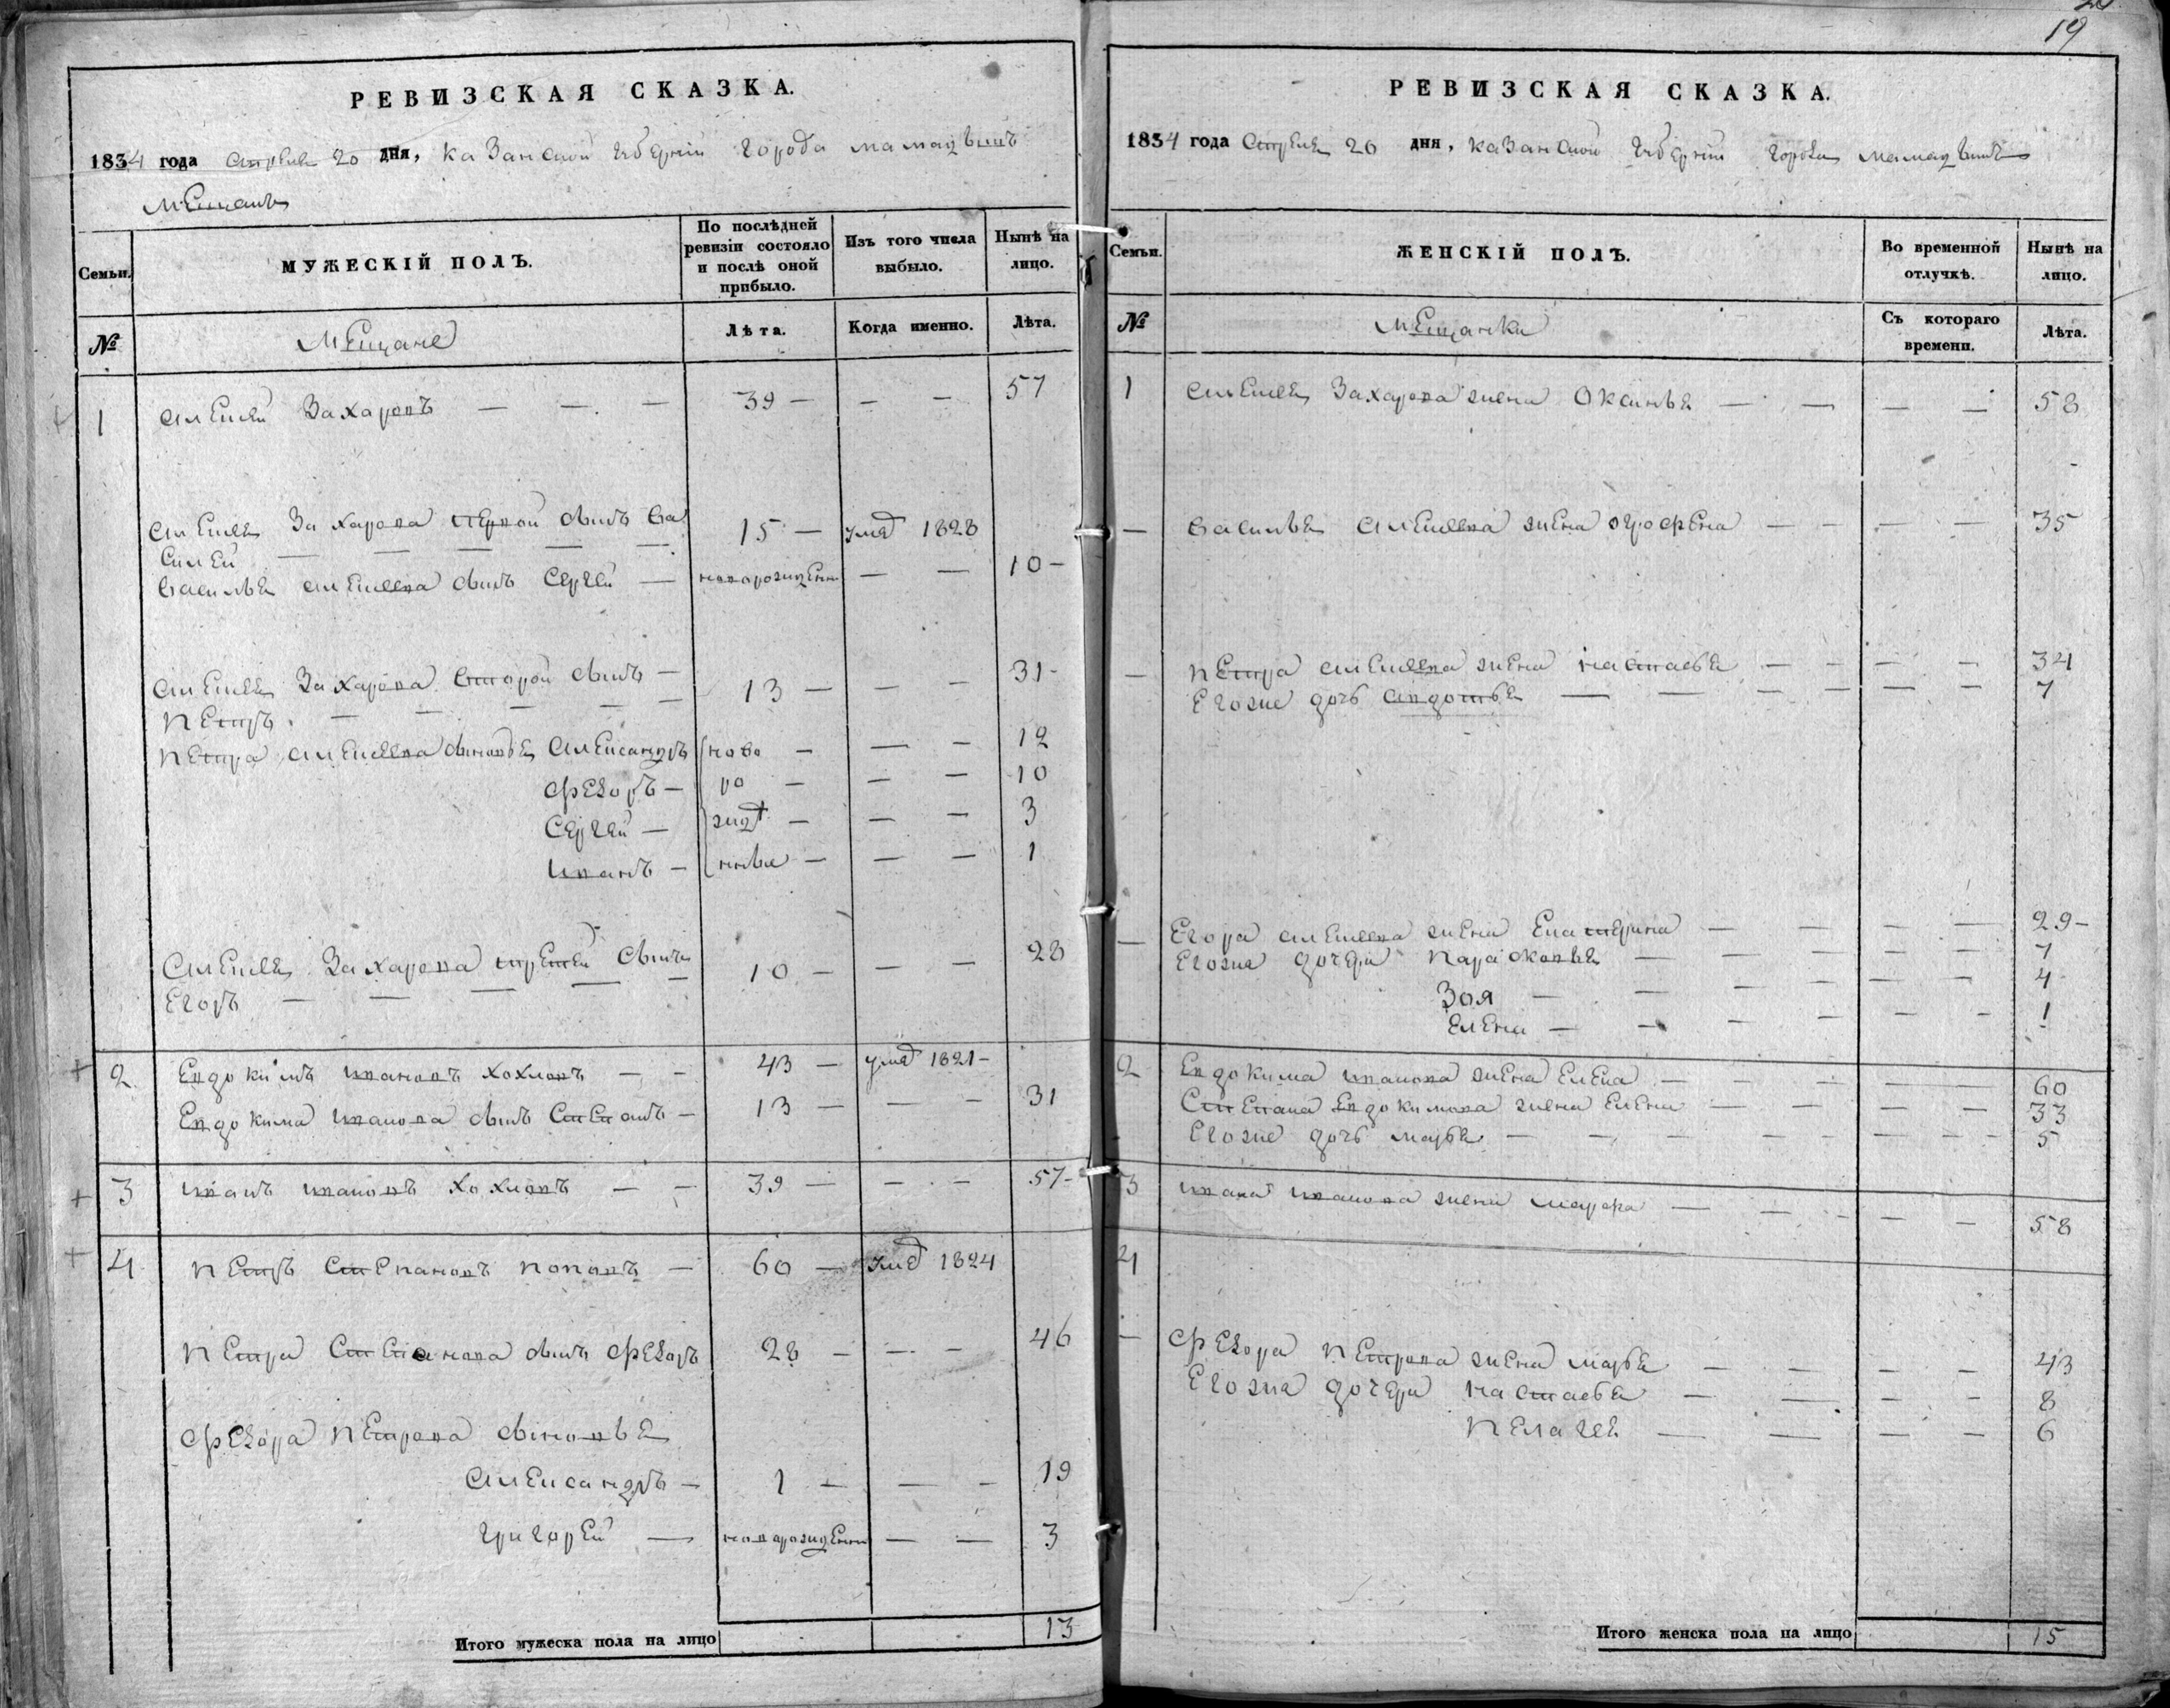 РЕВИЗСКАЯ СКАЗКА.
1834 года апреля 20 дня, казанской губернии города мамадыша
мещанъ
Семьи.
МУЖЕСКІЙ ПОЛЪ.
По послѣдней ревизіи состояло и послѣ оной прибыло.
Изъ того числа выбыло.
Нынѣ на лицо.
№
мещане
Лѣта.
Когда именно.
Лѣта.
1 алексей Захаровъ — — — 39 — — — 57
алексея Захарова первой сынъ ва
силей — — — — — 15 — умеръ 1828
василья алексеева сынъ сергей — новорожденъ — — 10 —
алексея Захарова второй сынъ —
петръ — — — — — 13 — — — 31 —
петра алексеева сыновья александръ ново — — — 12
федоръ — ро — — — 10
сергей — жде — — — 3
иванъ — нные — — — 1
алексея Захарова третей сынъ
егоръ — — — — — 10 — — — 28
2 евдокимъ ивановъ хохловъ — — 43 — умеръ 1821 —
евдокима иванова сынъ степанъ — 13 — — — 31
3 иванъ ивановъ хохловъ — — 39 — — — 57 —
4 петръ степановъ поповъ — 60 — умеръ 1824
петра степанова сынъ федоръ 28 — — — 46
федора петрова сыновья
александръ — 1 — — — 19
григорей — новорожденъ — — 3
Итого мужеска пола на лицо 13
19
РЕВИЗСКАЯ СКАЗКА.
1834 года апреля 20 дня, казанской губернии города мамадыша
Семьи.
ЖЕНСКІЙ ПОЛЪ.
Во временной отлучкѣ.
Нынѣ на лицо.
№
мещанки
Съ котораго времени.
Лѣта.
1 алексея Захарова жена Оксинья — — — — 58
— василья алексеева жена огрофена — — — — 35
— петра алексеева жена настасья — — — — 34
его же дочь авдотья — — — — — — 7
— егора алексеева жена екатерина — — — — 29 —
его же дочери парасковья — — — — — 7
Зоя — — — — — — 4
елена — — — — — — 1
2 евдокима иванова жена елена — — — — — 60
степана евдокимова жена елена — — — — — 33
его же дочь марья — — — — — — — 5
3 ивана иванова жена марфа — — — — — 58
4
— федора петрова жена марья — — — — 43
его же дочери настасья — — — — 8
пелагея — — — — 6
Итого женска пола на лицо 15